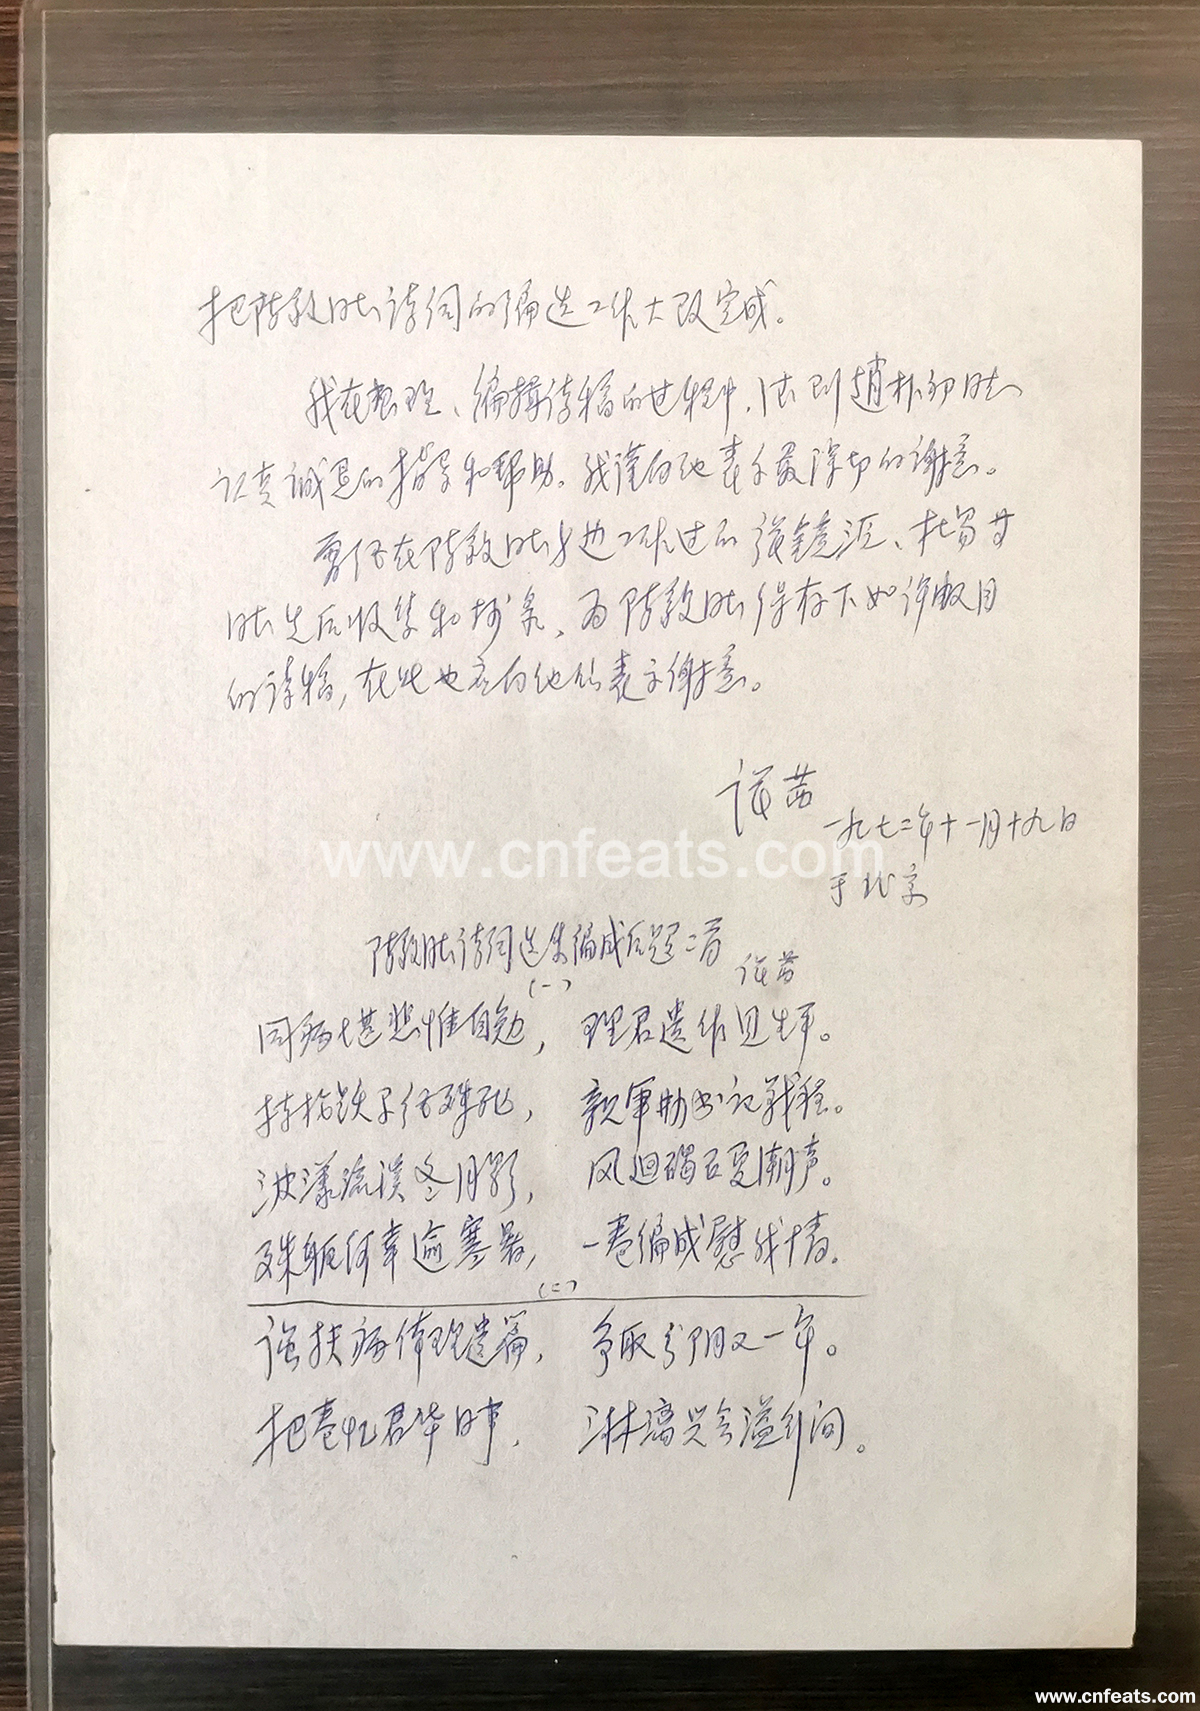 把陈毅同志诗词的编选工作大致完成。
我在整理、编辑诗稿的过程中，得到赵朴初同志
认真诚恳的指导和帮助。我谨向他表示最深切的谢意。
曾经在陈毅同志身边工作过的张镜源、杜易等
同志先后收集和抄录、为陈毅同志保存下如许数目
的诗稿，在此也应向他们表示谢意。
张茜
一九七二年十一月十九日
于北京
www.cnfeats.com
陈毅同志诗词选集编成后题二首
张茜
(一)
同病堪悲惟自勉，理君遗作见生平。
持枪跃马经殊死，秉笔勤书记战程。
波漾流溪冬月影，风迴碣石夏潮声。
残躯何幸逾寒暑，一卷编成慰我情。
(二)
强扶病体理遗篇，争取分阴又一年。
把卷忆君平日事，淋漓兴会溢行间。
www.cnfeats.com